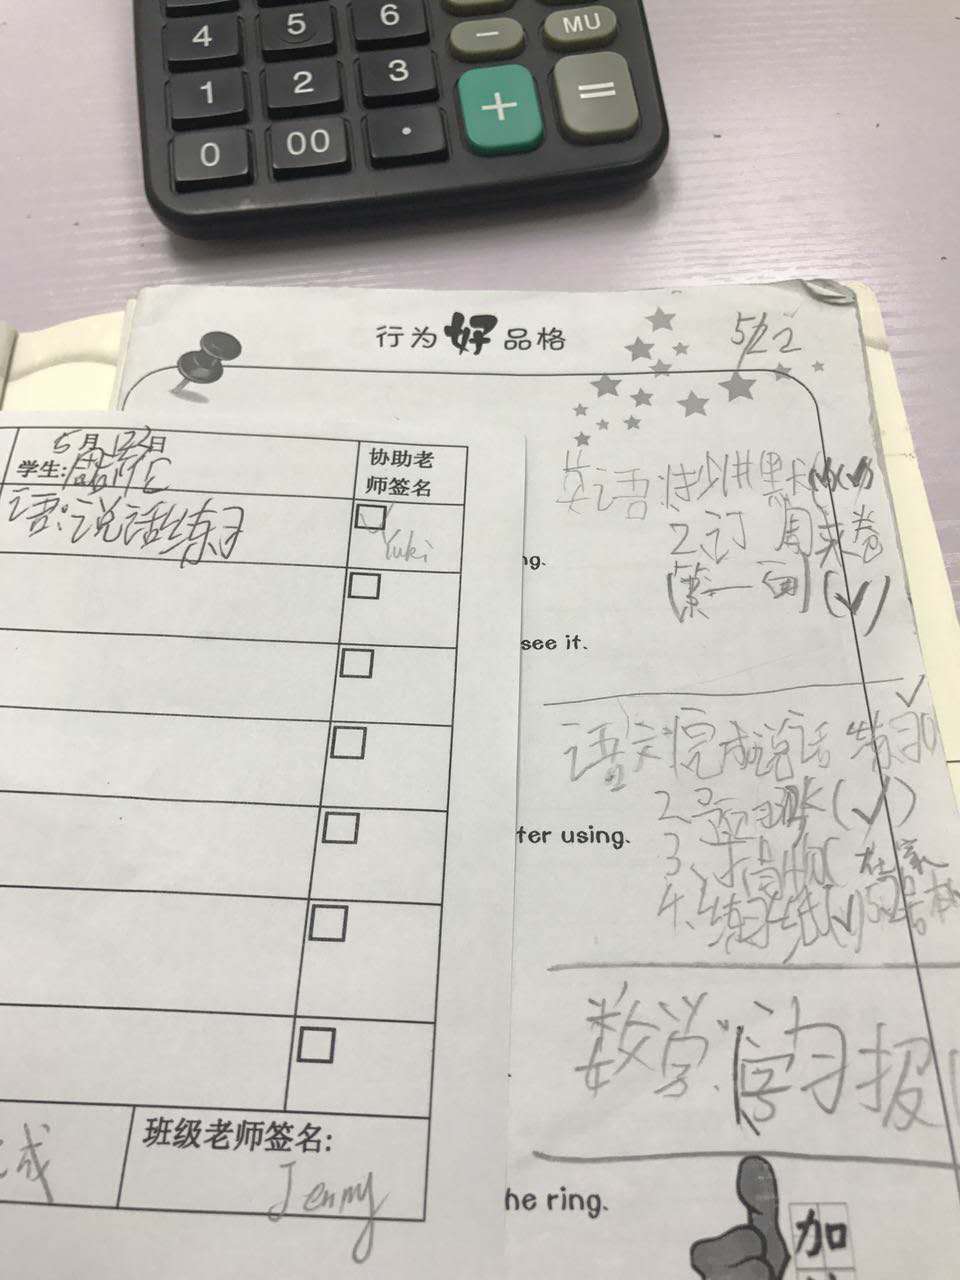 4 5 6 − MU
1 2 3 + =
0 00 ·
行为好品格
5/22
5月22日
学生:
协助老
师签名
语:说话练习
Yuki
班级老师签名:
Jenny
英语:
2、订 周末卷
(第一面)(✓)
语文:完成说话练习
2、(✓)
3、 在家
4、练习纸(✓)
数学:学习报
ng.
see it.
ter using.
he ring.
加